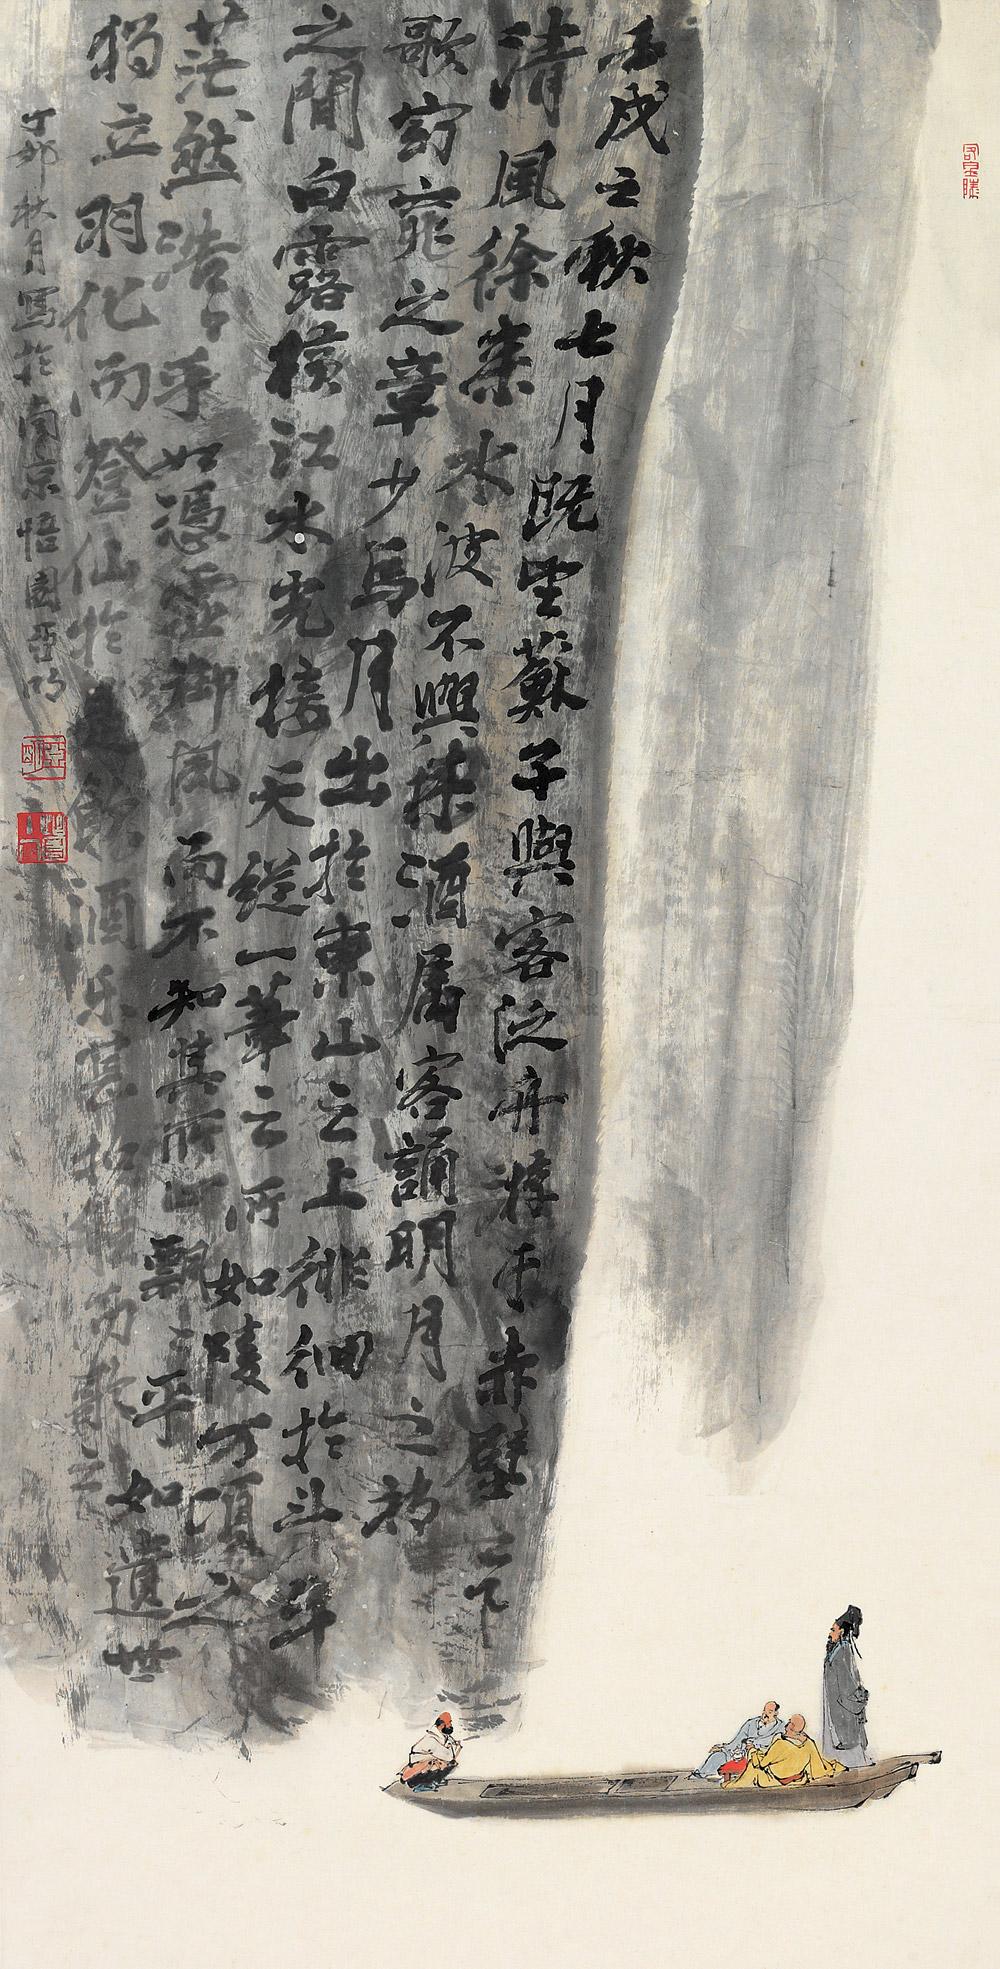 壬戌之秋七月既望蘇子與客泛舟游于赤壁之下
清風徐来水波不興
舉酒属客誦明月之詩
歌窈窕之章少焉月出於東山之上徘徊於斗牛
之間白露横江水光接天縱一葦之所如陵万頃之
茫然浩々乎如憑虚御風而不知其所止飄々乎如遺世
獨立羽化而登仙於是飲酒乐甚扣舷而歌之
丁卯秋月寫於南京悟園亞明
亞明